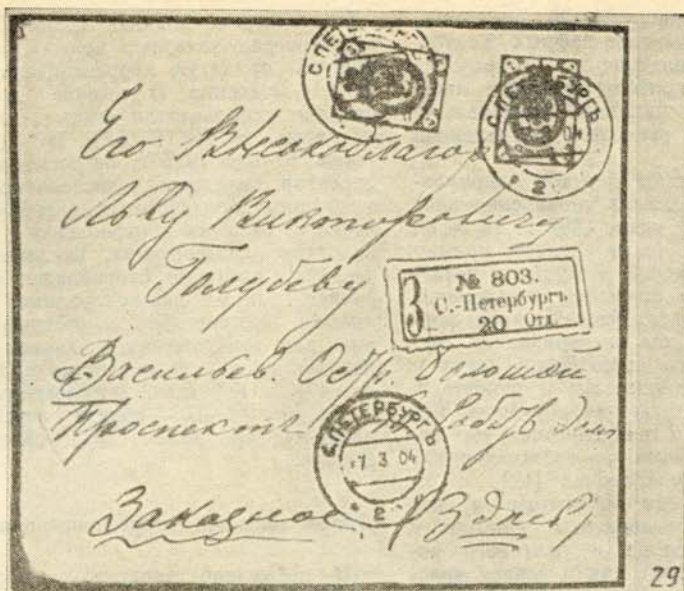 С.ПЕТЕРБУРГЪ
С.ПЕТЕРБУРГЪ
04
2
Его Высокоблагор
Льву Викторовичу
Голубеву
З
№ 803.
С.-Петербургъ
20 Отд.
Васильев. Остр. Большой
Проспектъ собств дом
С.ПЕТЕРБУРГЪ
7 3 04
2
Заказное (Здесь)
29